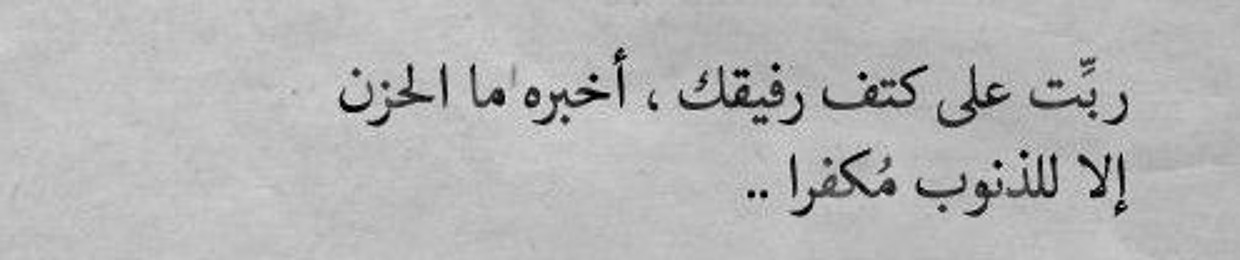 ربِّت على كتف رفيقك ، أخبره ما الحزن
إلا للذنوب مُكفرا ..